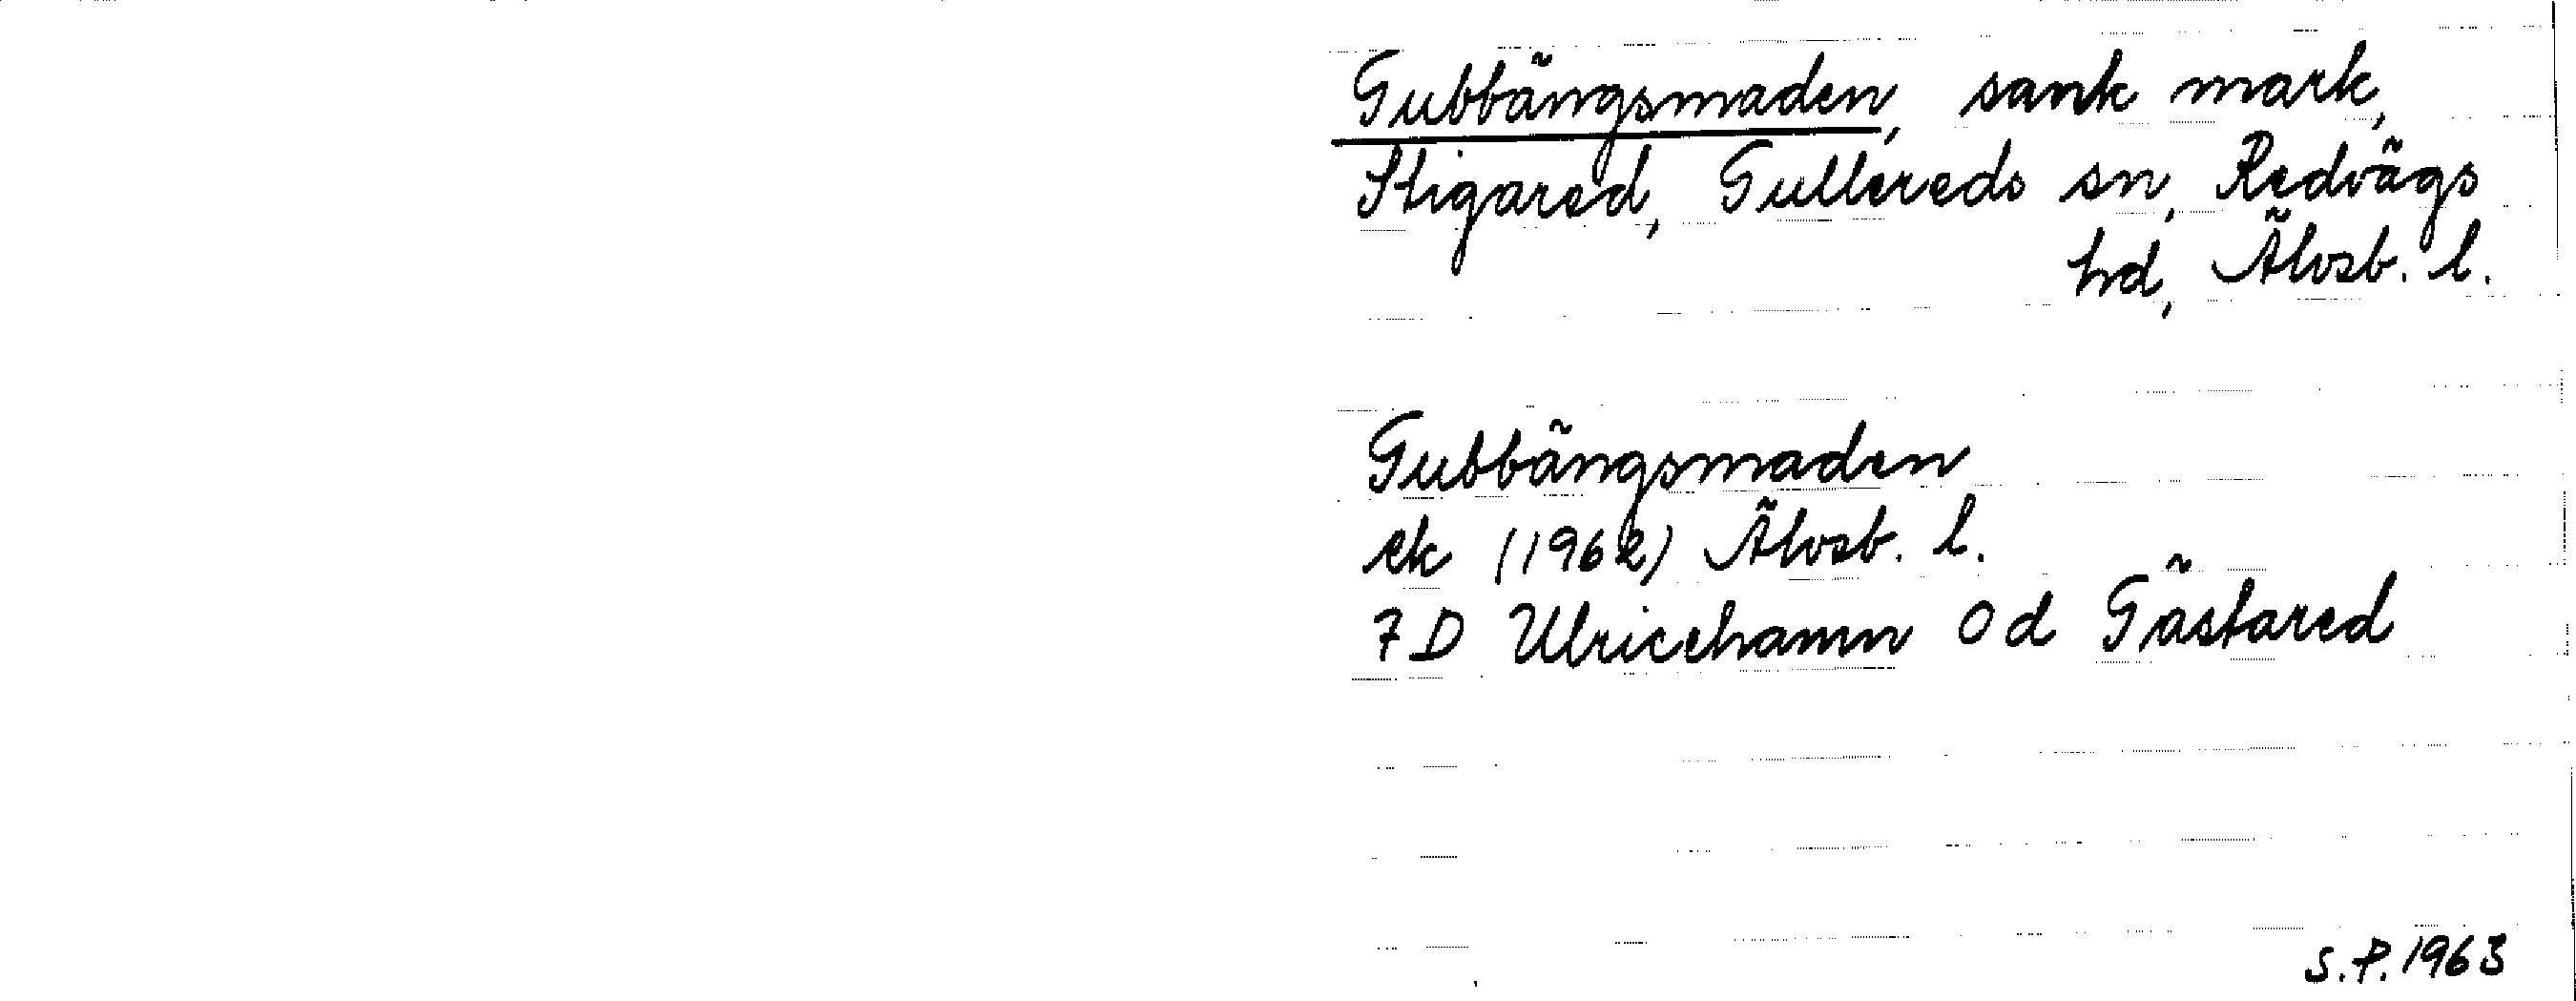 Gubbängsmaden, sank mark,
Stigared, Gullereds sn, Redvägs
hd, Älvsb. l.
Gubbängsmaden
ek (1962) Älvsb. l.
7 D Ulricehamn 0 d Gästared
S.P. 1963